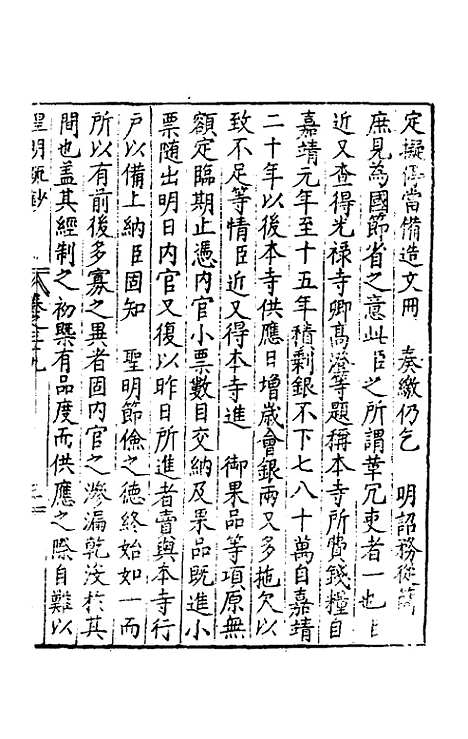 定擬停當備造文冊　奏繳仍乞　明詔務從簡
庶見為國節省之意此臣之所謂革冗吏者一也臣
近又查得光禄寺卿高澄等題稱本寺所費錢糧自
嘉靖元年至十五年積剩銀不下七八十萬自嘉靖
二十年以後本寺供應日增歲會銀兩又多拖欠以
致不足等情臣近又得本寺進　御果品等項原無
額定臨期止憑内官小票數目交納及果品既進小
票隨出明日内官又復以昨日所進者賣與本寺行
户以備上納臣固知　聖明節儉之德終始如一而
所以有前後多寡之異者固内官之滲漏乾没於其
間也盖其經制之初槩有品度而供應之際自難以
皇明疏鈔